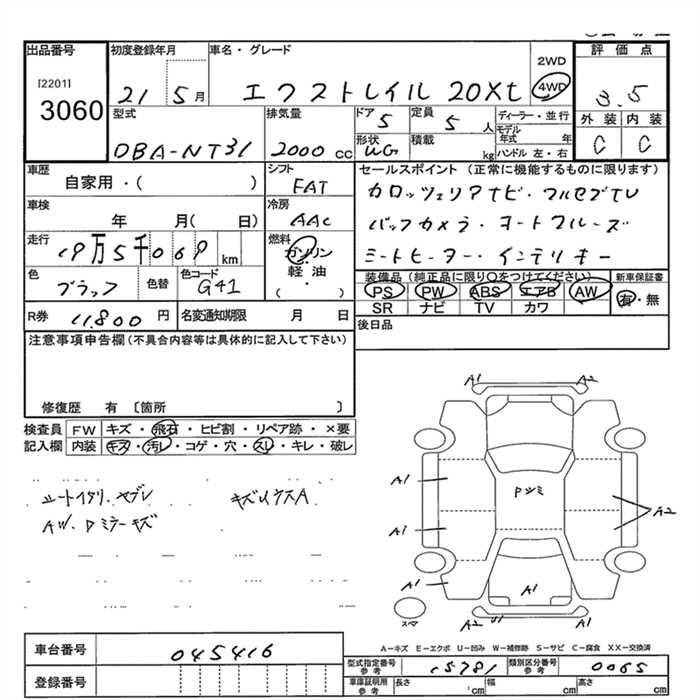 出品番号 初度登録年月 車名・グレード 評価点
[2201]
3060
21 5月 エクストレイル 20Xt 2WD 4WD 3.5
型式 排気量 ドア 5 定員 5 人 ディーラー・並行 外装 内装
DBA-NT31 2000 cc 形状 WG 積載 kg モデル年式 年 C C
ハンドル 左・右
車歴 シフト セールスポイント(正常に機能するものに限ります)
自家用・( ) FAT カロッツェリアナビ・フルセグTV
車検 冷房
年 月( 日) AAC バックカメラ・オートクルーズ
走行 燃料
19万5千069 km ガソリン シートヒーター・インテリキー
軽油
・
( )
色 色替 色コード 装備品(純正品に限り○をつけてください) 新車保証書
ブラック G41 PS PW ABS エアB AW 有・無
SR ナビ TV カワ
R券 11,800 円 名変通知期限 月 日 後日品
注意事項申告欄(不具合内容等は具体的に記入して下さい)
修復歴 有 〔箇所 〕
検査員 FW キズ・飛石・ヒビ割・リペア跡・×要
記入欄 内装 キズ・汚レ・コゲ・穴・スレ・キレ・破レ
シートイタリ・ヤブレ キズ
AW・Dミラーキズ
A1 A2
A1 Pツミ
A2
A1
A1 A1
スマ A2 A1
A-キズ E-エクボ U-凹み W-補修跡 S-サビ C-腐食 XX-交換済
車台番号 045416
型式指定番号 参考 15781 類別区分番号 参考 0065
登録番号
車庫証明用 参考 長さ cm 幅 cm 高さ cm